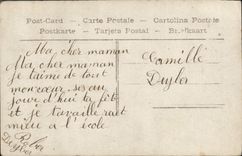 Post-Card - Carte Postale - Cartolina Postale
Postkarte - Tarjeta Postal - Briefkaart
Ma cher maman
Ma cher maman
je taime de tout
mon cœur ses au
jourd'hui ta fête
et je travaillerait
mieu a l'école
Camille